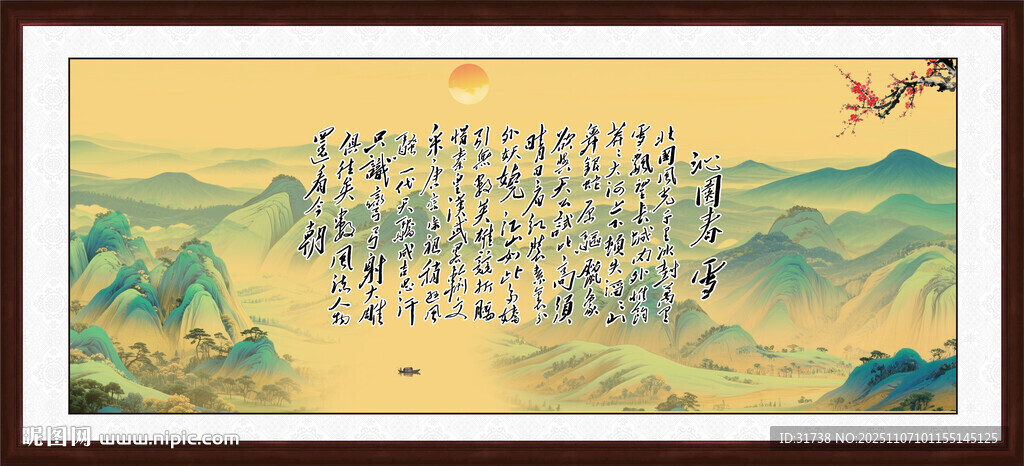 沁園春 雪
北國風光千里冰封萬里
雪飘望长城内外惟餘
莽莽大河上下頓失滔滔山
舞銀蛇原驅臘象
欲與天公試比高須
晴日看红装素裹分
外妖嬈江山如此多嬌
引無數英雄競折腰
惜秦皇漢武略輸文
采唐宗宋祖稍遜风
騷一代天驕成吉思汗
只識彎弓射大雕
俱往矣數风流人物
還看今朝
昵图网 www.nipic.com
ID:31738 NO:20251107101155145125